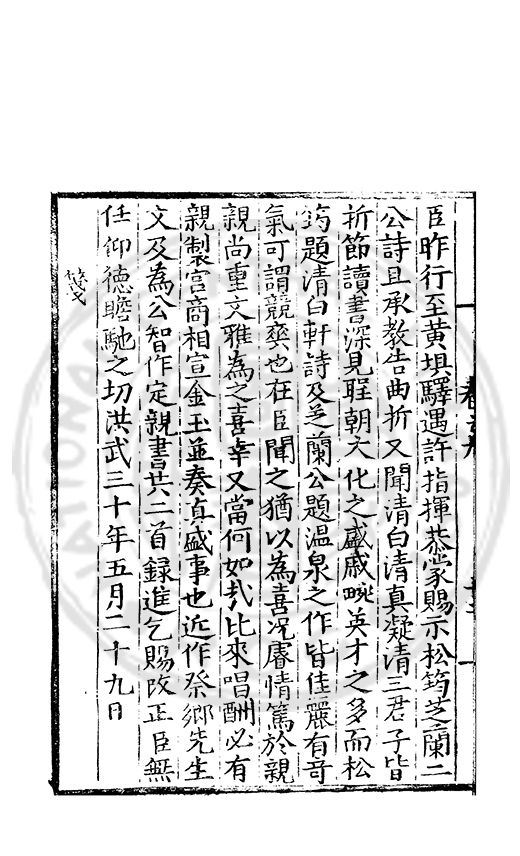 臣昨行至黄埧驛遇許指揮恭蒙賜示松筠芝蘭二
公詩且承教告曲折又聞清白清真凝清三君子皆
折節讀書深見聖朝文化之盛戚畹英才之多而松
筠題清白軒詩及芝蘭公題溫泉之作皆佳麗有奇
氣可謂競爽也在臣聞之猶以為喜况睿情篤於親
親尚重文雅為之喜幸又當何如哉比來唱酬必有
親製宮商相宣金玉並奏真盛事也近作祭鄉先生
文及為公智作定親書共二首録進乞賜改正臣無
任仰德瞻馳之切洪武三十年五月二十九日